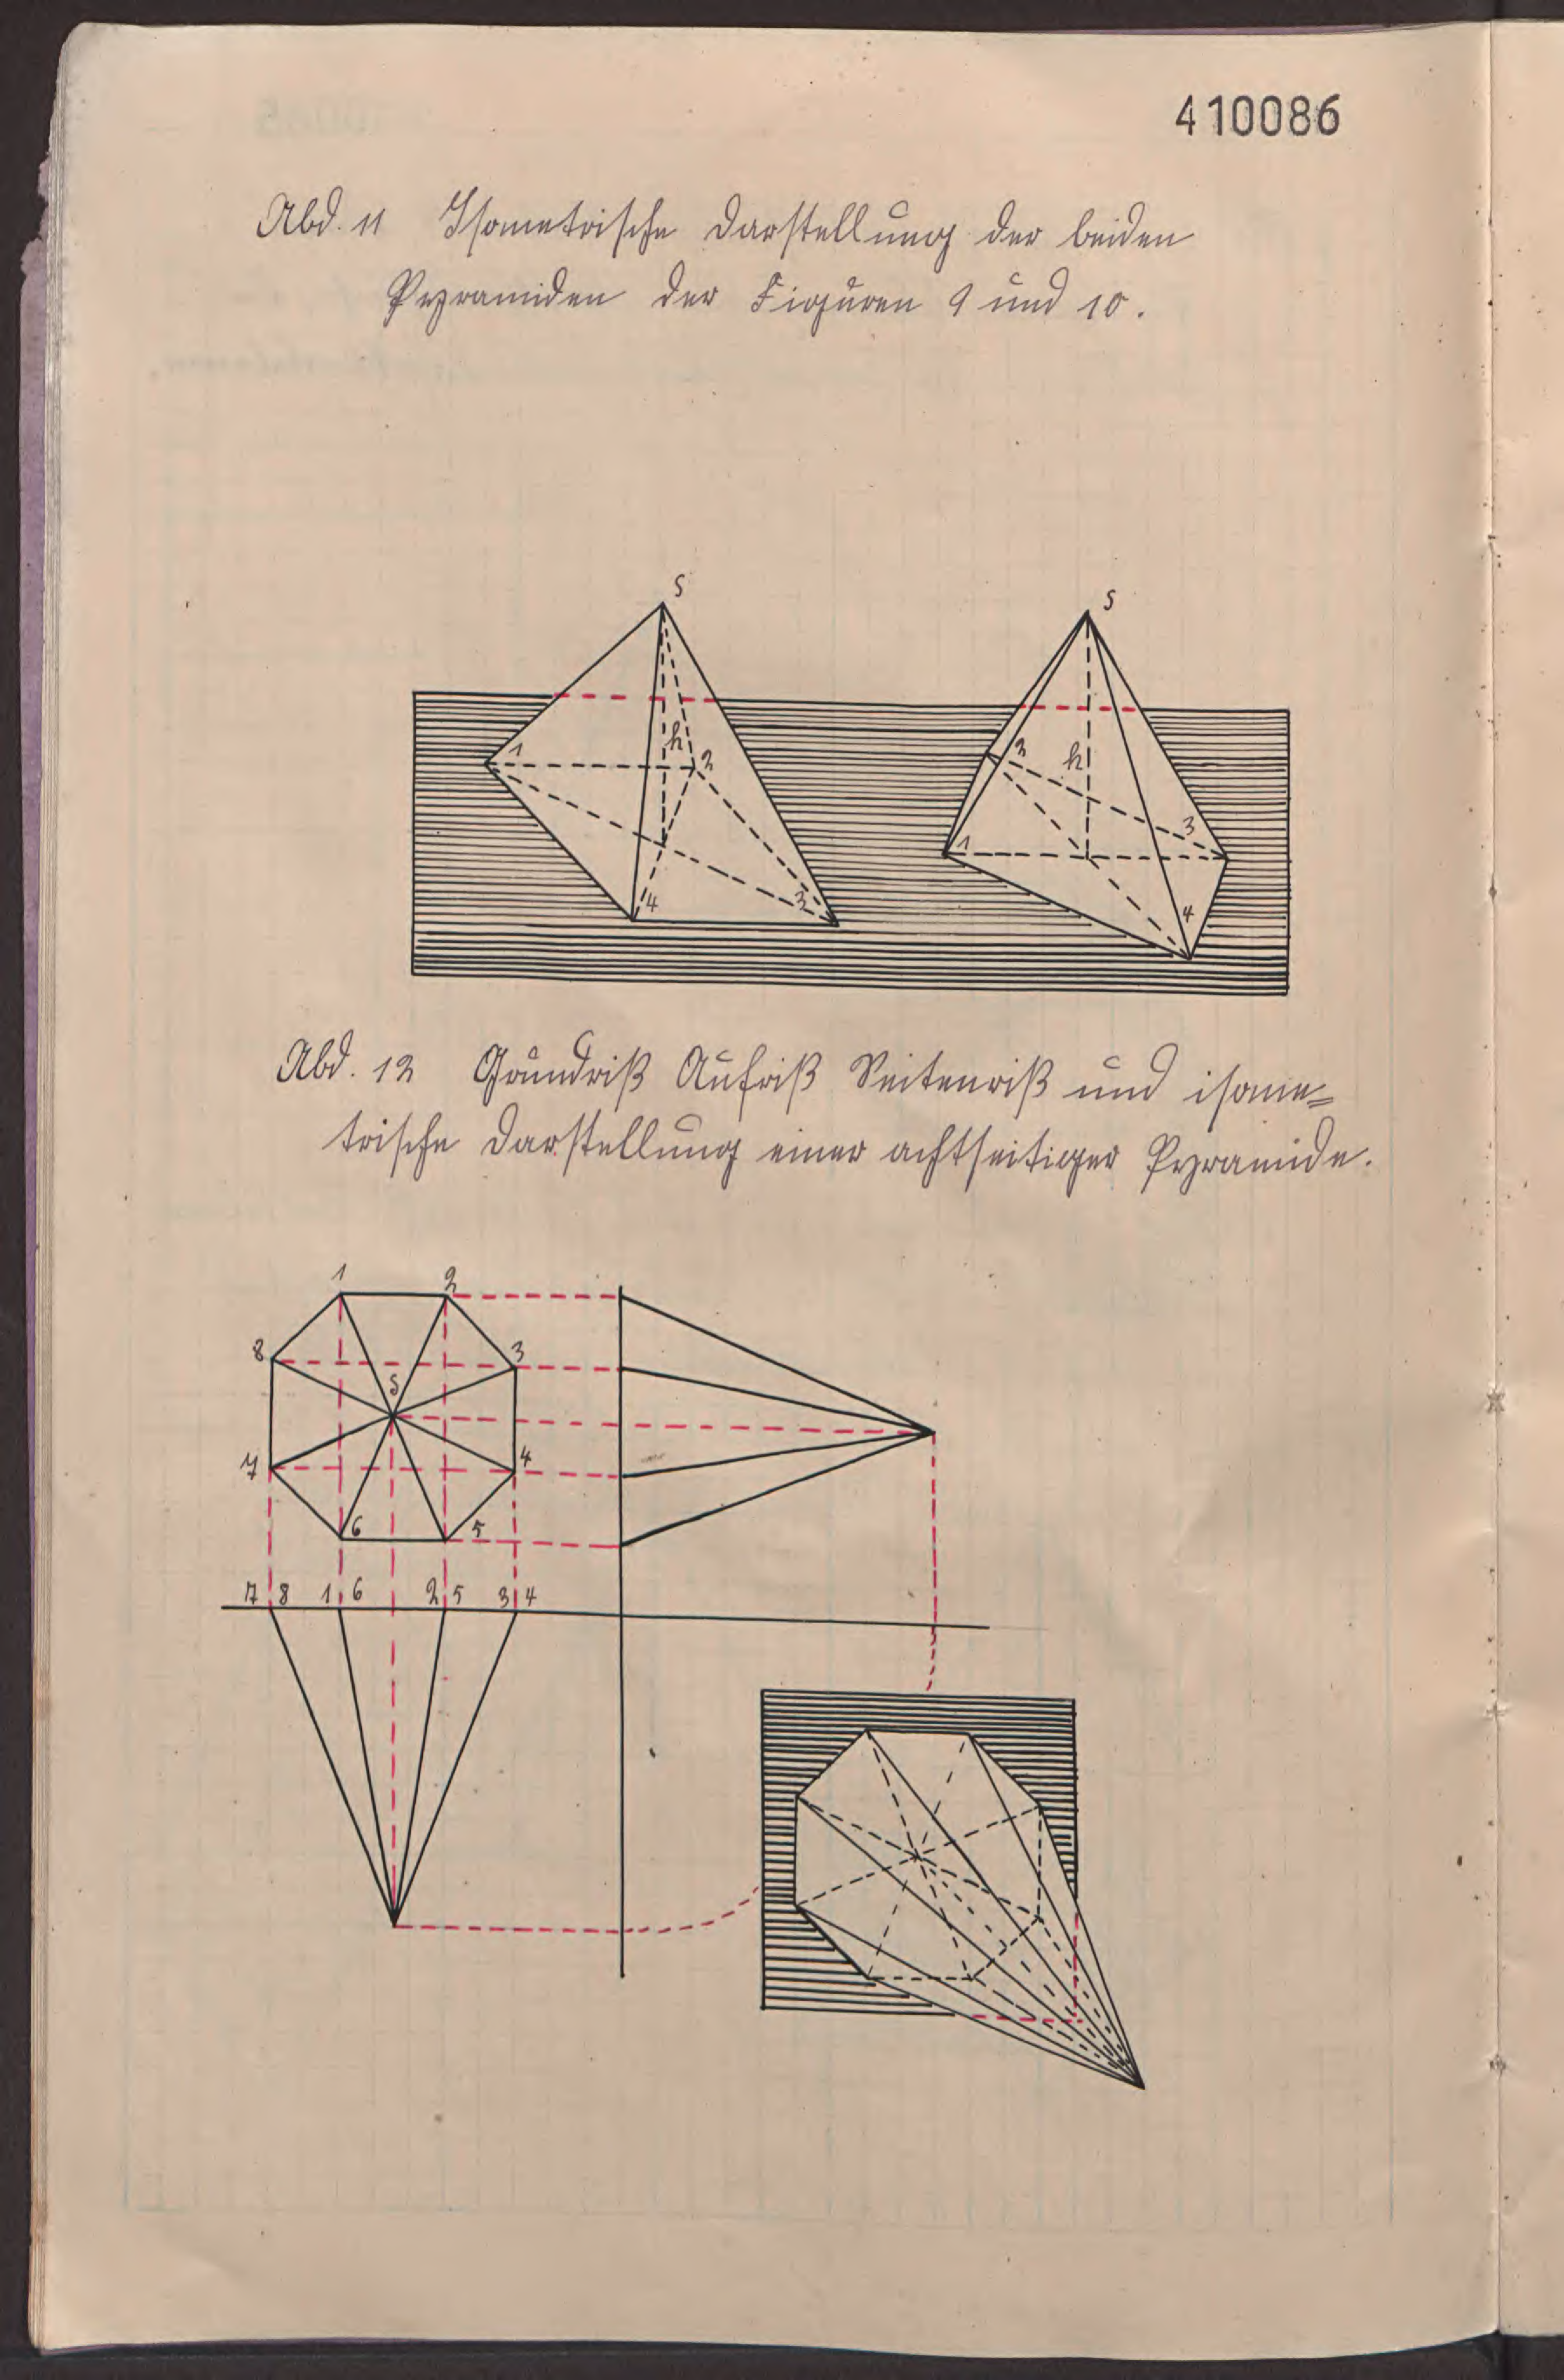 410086
Abd. 11 Isometrische Darstellung der beiden
Pyramiden der Figuren 9 und 10.
S
S
1
h
2
4
3
2
h
3
1
4
Abd. 12 Grundriß Aufriß Seitenriß und isome=
trische Darstellung einer achtseitiger Pyramide.
1 2
8 3
S
7 4
6 5
7 8 1 6 2 5 3 4